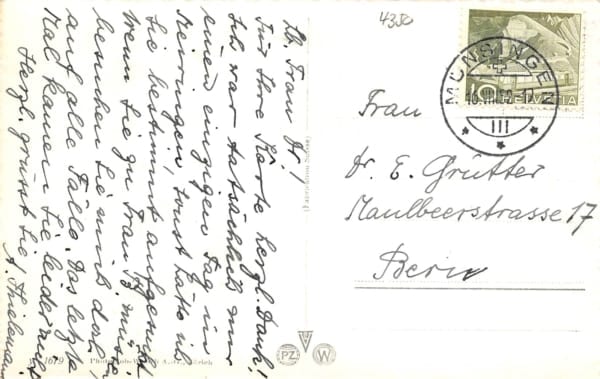 4350
Lb. Frau Dr.!
Für Ihre Karte herzl. Dank!
Ich war tatsächlich nur
einen einzigen Tag in
Meiringen, sonst hätte ich
Sie bestimmt aufgesucht.
Wenn Sie zu Frau B. müssen
besuchen Sie mich doch
auf alle Fälle. Das letzte
Mal kamen Sie leider nicht
Herzl. grüsst Sie
A.
1619
MÜNSINGEN
10
HELVETIA
III
Frau
Dr. E. Grütter
Maulbeerstrasse 17
Bern
PZ
W